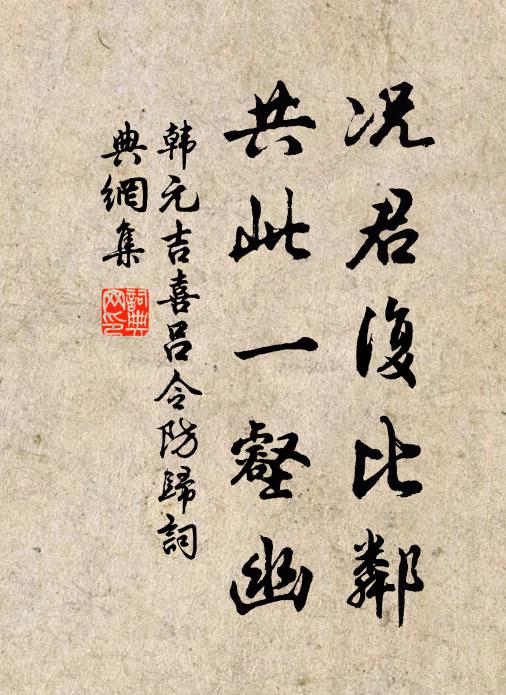 况君復比鄰
共此一壑幽
韩元吉喜吕令防歸詞
典網集
詞典
网印